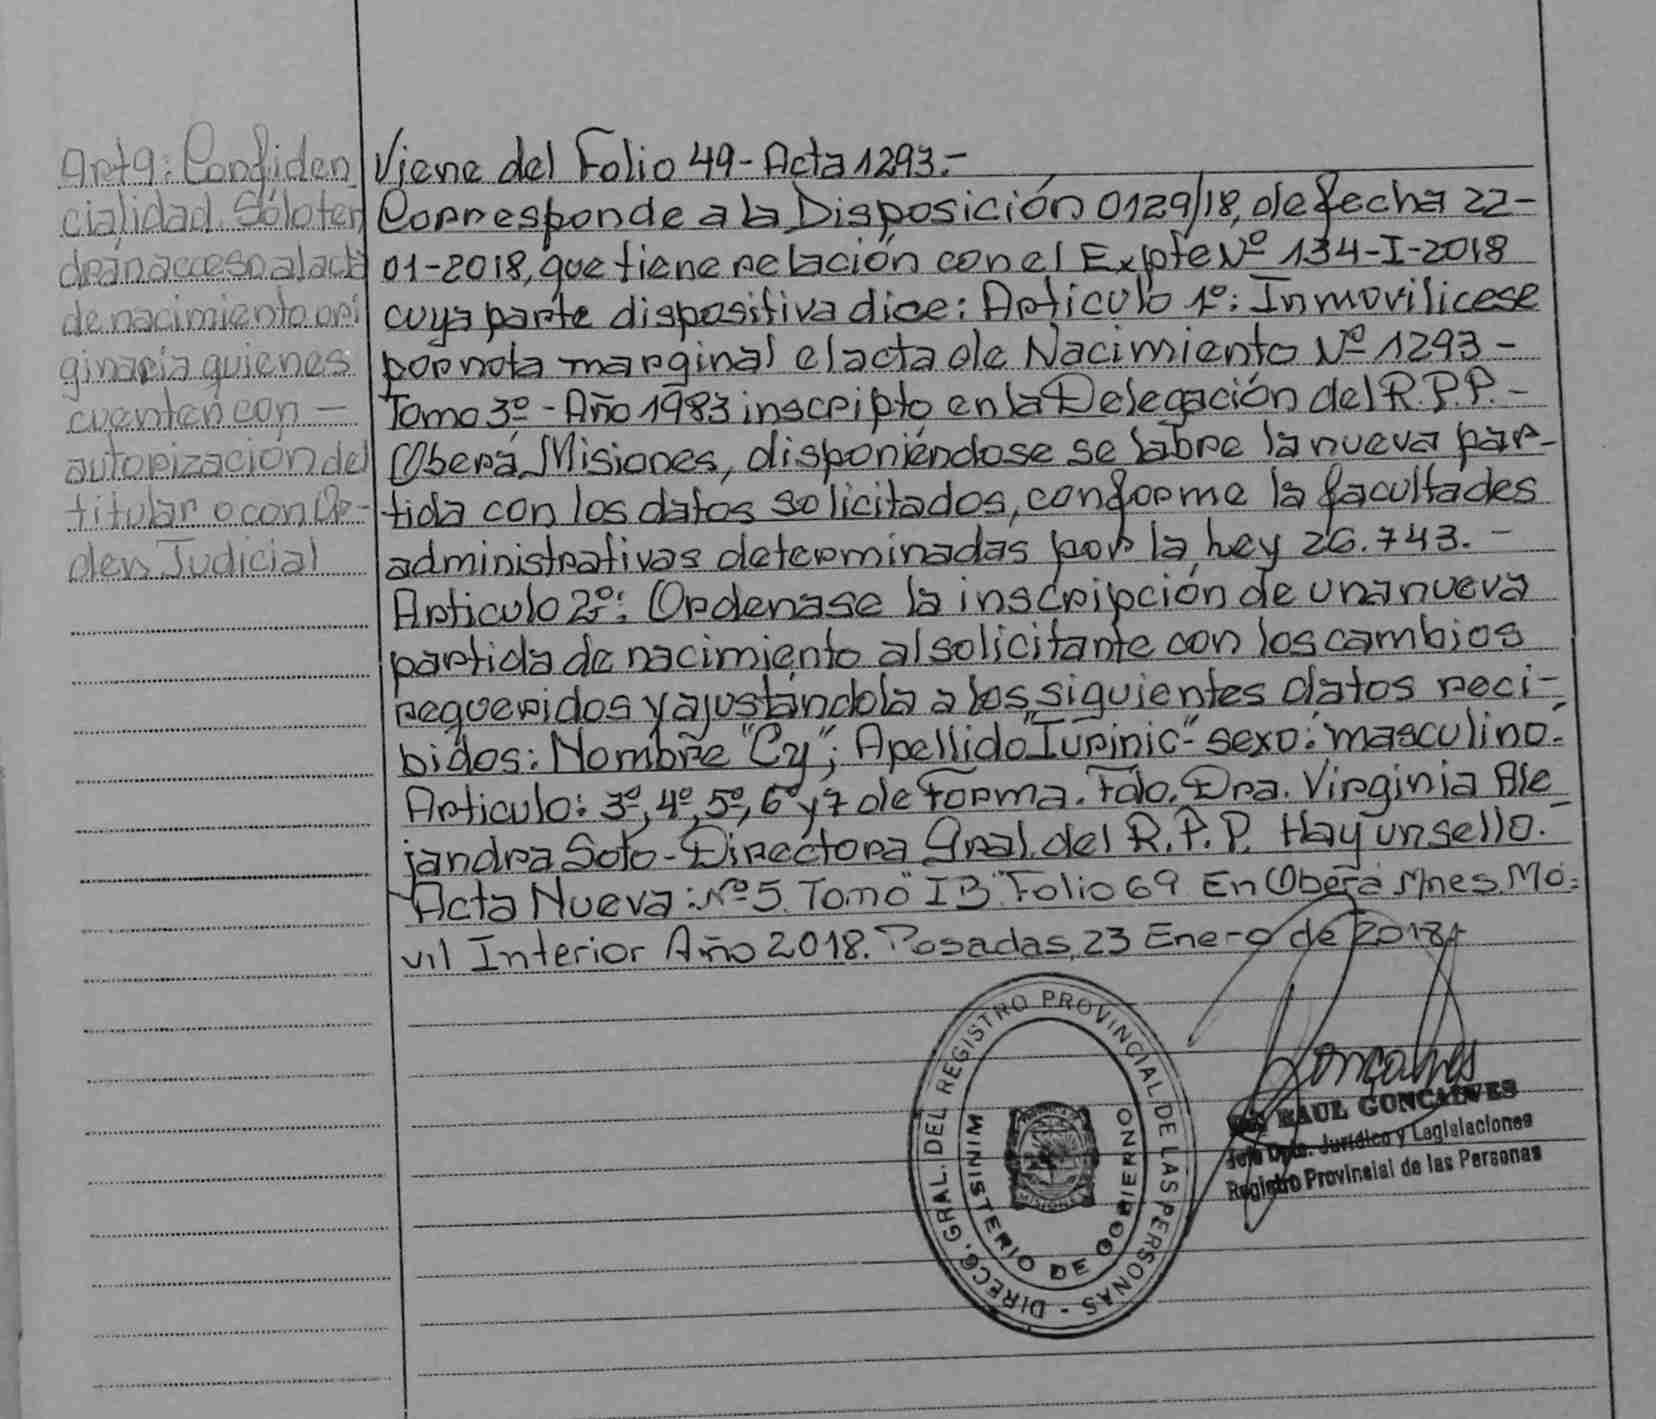 Art 9: Confiden
cialidad. Sólo ten
drán acceso al acta
de nacimiento ori
ginaria quienes
cuenten con -
autorización del
titular o con Or-
den Judicial
Viene del Folio 49 - Acta 1293.-
Corresponde a la Disposición 0129/18, de fecha 22-
01-2018, que tiene relación con el Expte Nº 134-I-2018
cuya parte dispositiva dice: Artículo 1º: Inmovilicese
por nota marginal el acta de Nacimiento Nº 1293 -
Tomo 3º - Año 1983 inscripto en la Delegación del R.P.P. -
Oberá, Misiones, disponiéndose se labre la nueva par-
tida con los datos solicitados, conforme la facultades
administrativas determinadas por la Ley 26.743. -
Articulo 2º: Ordenase la inscripción de una nueva
partida de nacimiento al solicitante con los cambios
requeridos y ajustándola a los siguientes datos reci-
bidos: Nombre "Cy"; Apellido "Iurinic" - sexo: masculino.-
Articulo: 3º, 4º, 5º, 6º y 7 de Forma. Fdo. Dra. Virginia Ale
jandra Soto - Directora Gral. del R.P.P. Hay un sello.-
Acta Nueva: Nº 5. Tomo "I B" Folio 69 En Oberá Mnes. Mó-
vil Interior Año 2018. Posadas, 23 Enero de 2018
DIRECC. GRAL. DEL REGISTRO PROVINCIAL DE LAS PERSONAS -
MINISTERIO DE GOBIERNO
MISIONES
Goncalves
RAUL GONCALVES
Jefe Dpto. Jurídico y Legislaciones
Registro Provincial de las Personas